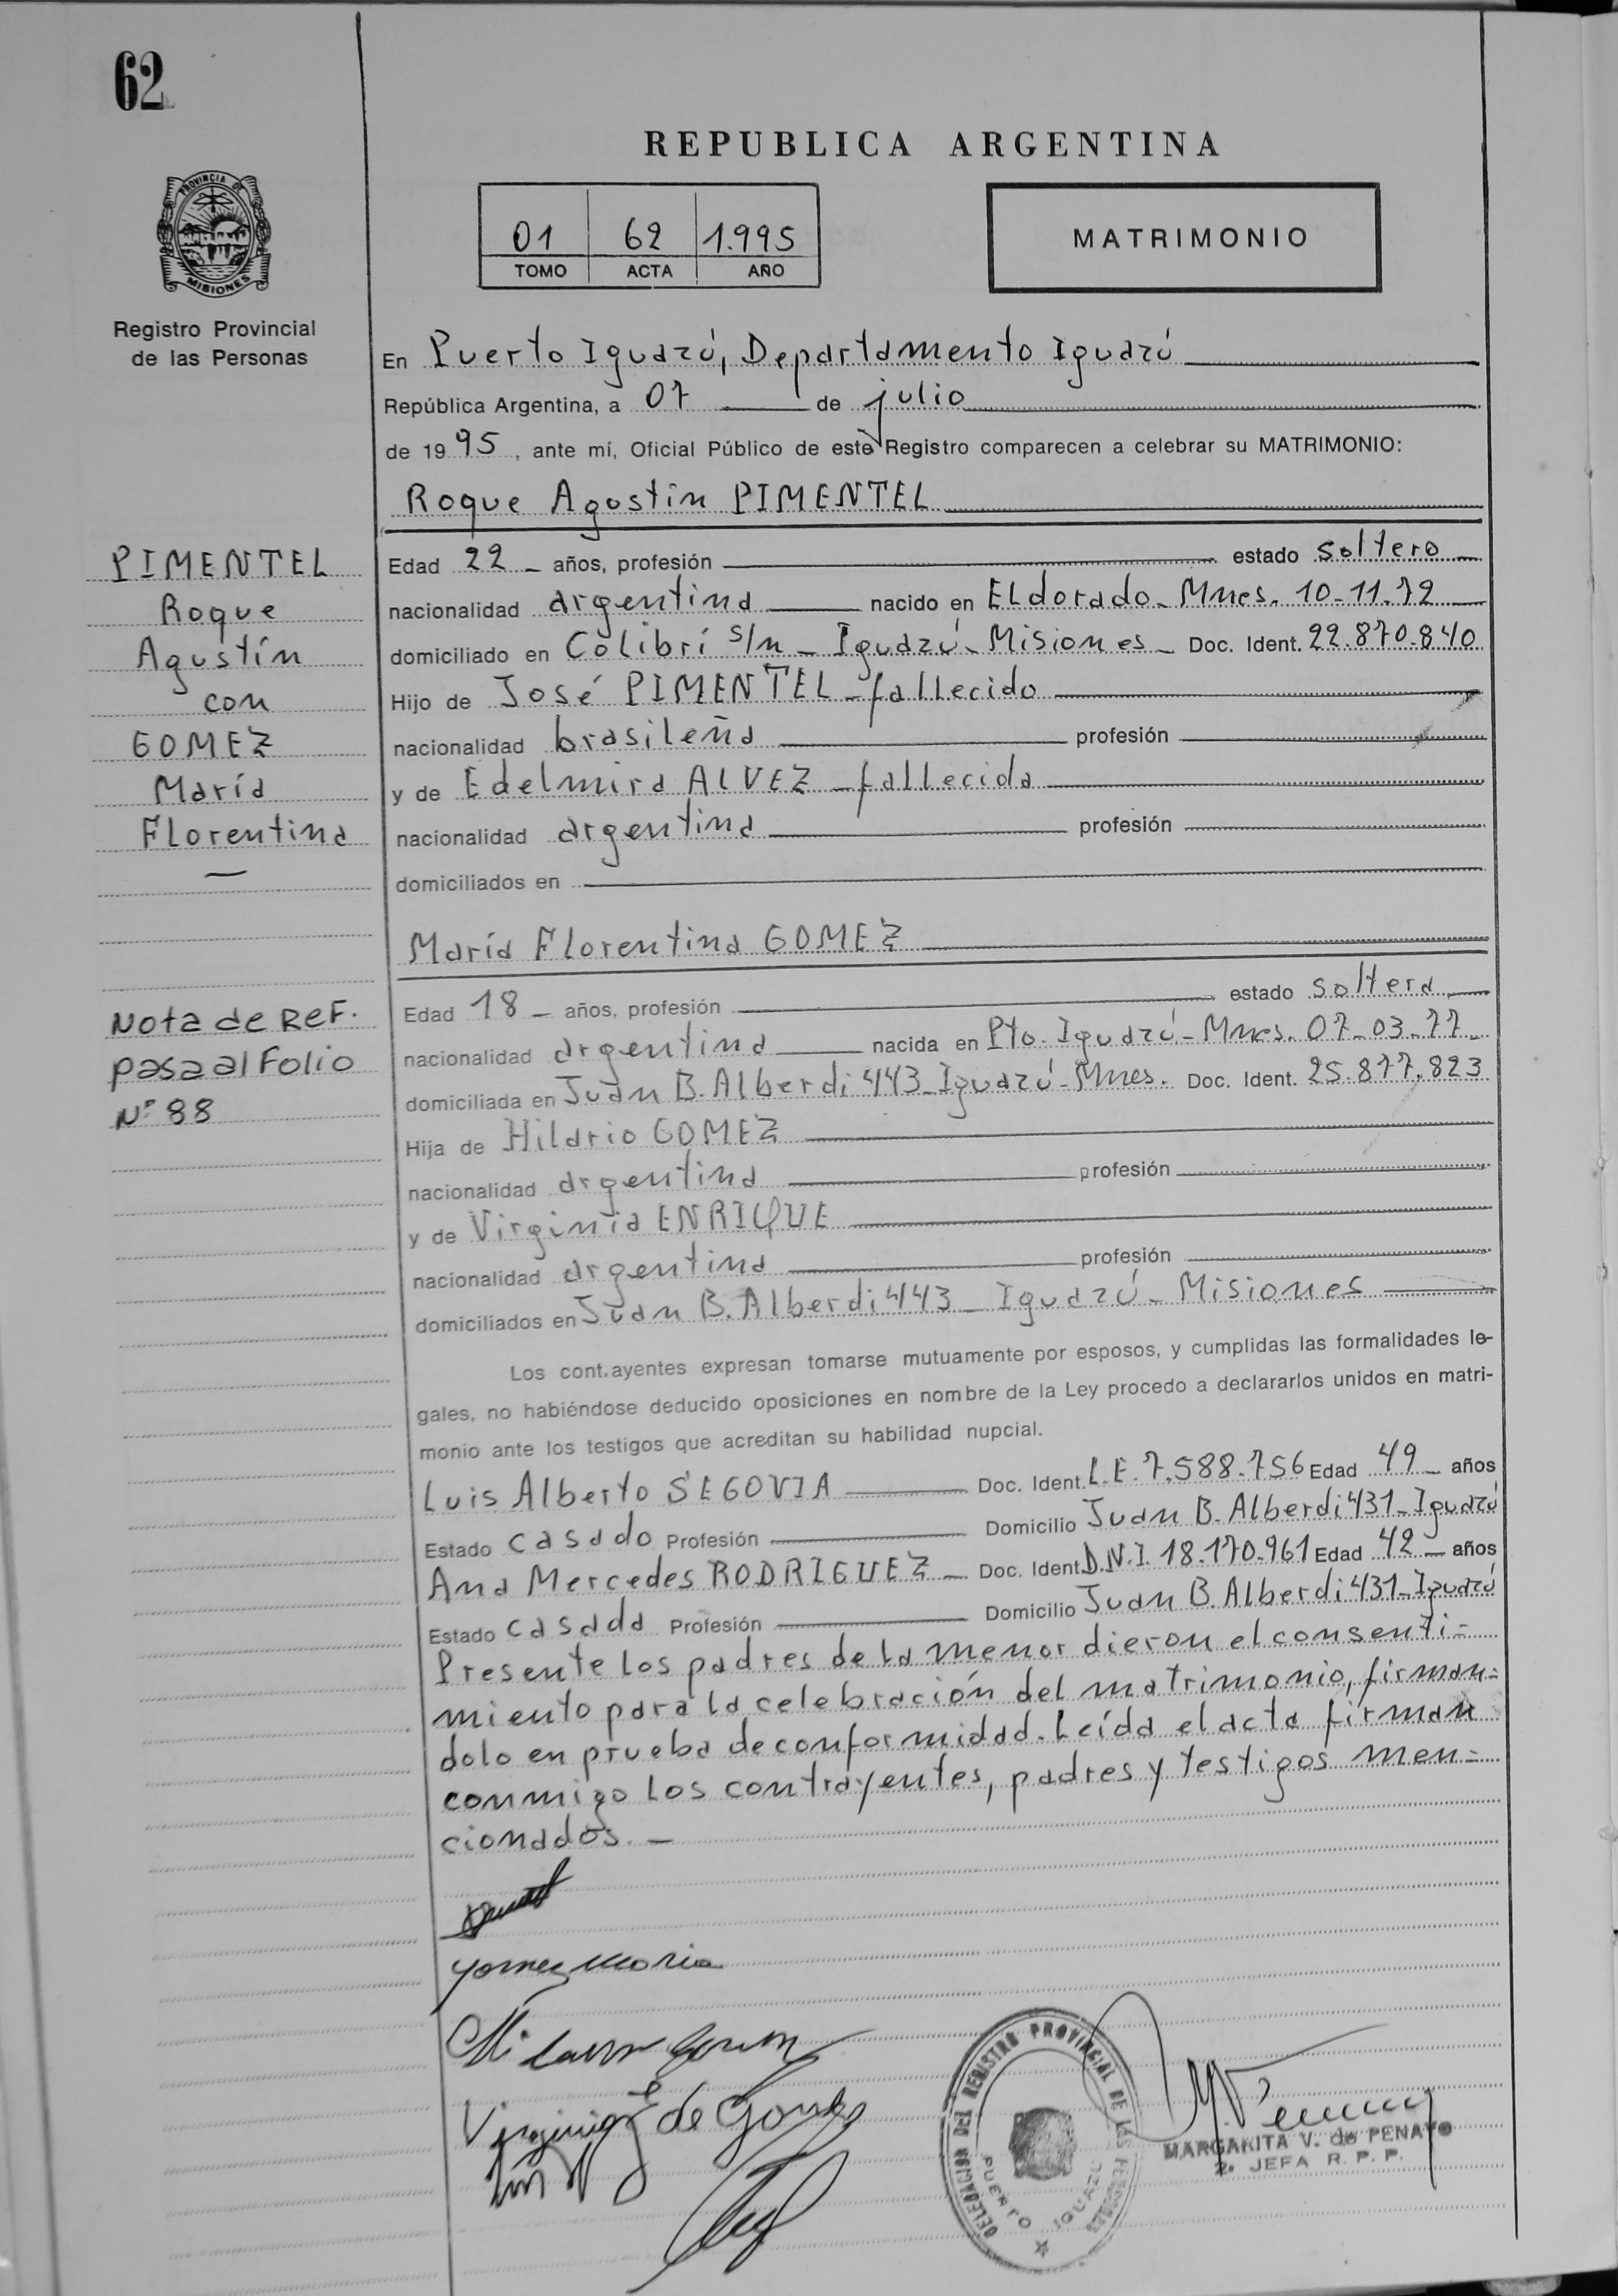 62
REPUBLICA ARGENTINA
PROVINCIA DE
MISIONES
01 62 1.995
TOMO ACTA AÑO
MATRIMONIO
Registro Provincial
de las Personas
En Puerto Iguazú, Departamento Iguazú
República Argentina, a 07 de julio
de 1995, ante mí, Oficial Público de este Registro comparecen a celebrar su MATRIMONIO:
Roque Agostín PIMENTEL
PIMENTEL
Roque
Agustín
con
GOMEZ
María
Florentina
Edad 22 años, profesión estado soltero
nacionalidad argentina nacido en Eldorado - Mnes. 10-11-72
domiciliado en Colibrí s/n - Iguazú - Misiones - Doc. Ident. 22.870.840
Hijo de José PIMENTEL - fallecido
nacionalidad brasileña profesión
y de Edelmira ALVEZ - fallecida
nacionalidad argentina profesión
domiciliados en
María Florentina GOMEZ
Nota de Ref.
pasa al Folio
Nº 88
Edad 18 - años, profesión estado soltera
nacionalidad argentina nacida en Pto. Iguazú - Mnes. 07-03-77
domiciliada en Juan B. Alberdi 443 - Iguazú - Mnes. Doc. Ident. 25.877.823
Hija de Hilario GOMEZ
nacionalidad argentina profesión
y de Virginia ENRIQUE
nacionalidad argentina profesión
domiciliados en Juan B. Alberdi 443 - Iguazú - Misiones
Los cont.ayentes expresan tomarse mutuamente por esposos, y cumplidas las formalidades le-
gales, no habiéndose deducido oposiciones en nombre de la Ley procedo a declararlos unidos en matri-
monio ante los testigos que acreditan su habilidad nupcial.
Luis Alberto SEGOVIA Doc. Ident. L.E. 7.588.756 Edad 49 - años
Estado casado Profesión Domicilio Juan B. Alberdi 431 - Iguazú
Ana Mercedes RODRIGUEZ - Doc. Ident. D.N.I. 18.170.961 Edad 42 - años
Estado casada Profesión Domicilio Juan B. Alberdi 431 - Iguazú
Presente los padres de la menor dieron el consenti=
miento para la celebración del matrimonio, firman=
dolo en prueba de conformidad. Leída el acta firman
conmigo los contrayentes, padres y testigos men=
cionados. -
gomez maria
Virginia E de Gomez
DELEGACION DEL REGISTRO PROVINCIAL DE LAS PERSONAS
PUERTO IGUAZU
MARGARITA V. de PENAYO
2. JEFA R. P. P.